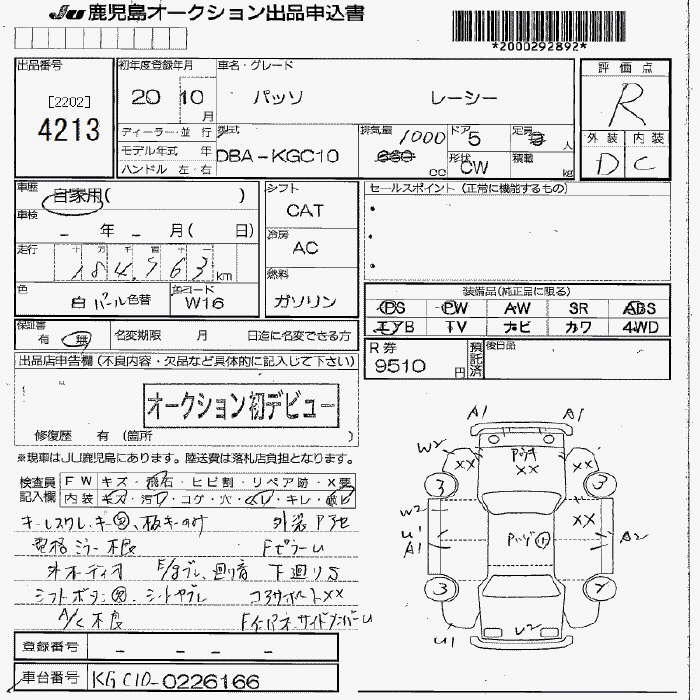 JU 鹿児島オークション出品申込書
*2000292892*
出品番号
[2202]
4213
初年度登録年月
20 10 月
車名・グレード
パッソ レーシー
評価点
R
外装 内装
D C
ディーラー・並 行
モデル年式 年
ハンドル 左・右
型式
DBA-KGC10
排気量
1000
660 cc
ドア
5
形状
CW
定員
人
積載
kg
車歴
自家用( )
車検
- 年 - 月( 日)
走行
十 万 千 百 十 一
184,963 km
色
白 パール色替
色コード
W16
シフト
CAT
冷房
AC
燃料
ガソリン
セールスポイント(正常に機能するもの)
・
・
・
装備品(純正品に限る)
PS PW AW SR ABS
エアB TV ナビ カワ 4WD
保証書
有 無
名変期限 月 日迄に名変できる方
R券
9510 円
預託済
後日品
出品店申告欄(不良内容・欠品など具体的に記入して下さい)
オークション初デビュー
修復歴 有 (箇所 )
※現車はJU鹿児島にあります。陸送費は落札店負担となります。
検査員記入欄
FW キズ・飛石・ヒビ割・リペア跡・×要
内装 キズ・汚れ・コゲ・穴・・キレ・
キーレスクレ・キー 外装
ミラー不良 FピラーU
外オーディオ 下廻りS
シフトボタン コアサポートXX
A/C不良 U
登録番号
- - - -
車台番号
KGC10-0226166
A1 A1
W2
XX XX
XX
3 3
W2
U1
A1
XX
A2
3
U2
U1